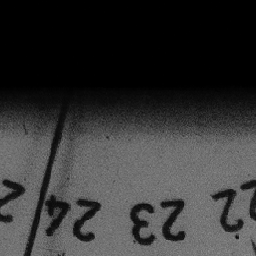 22 23 24 2